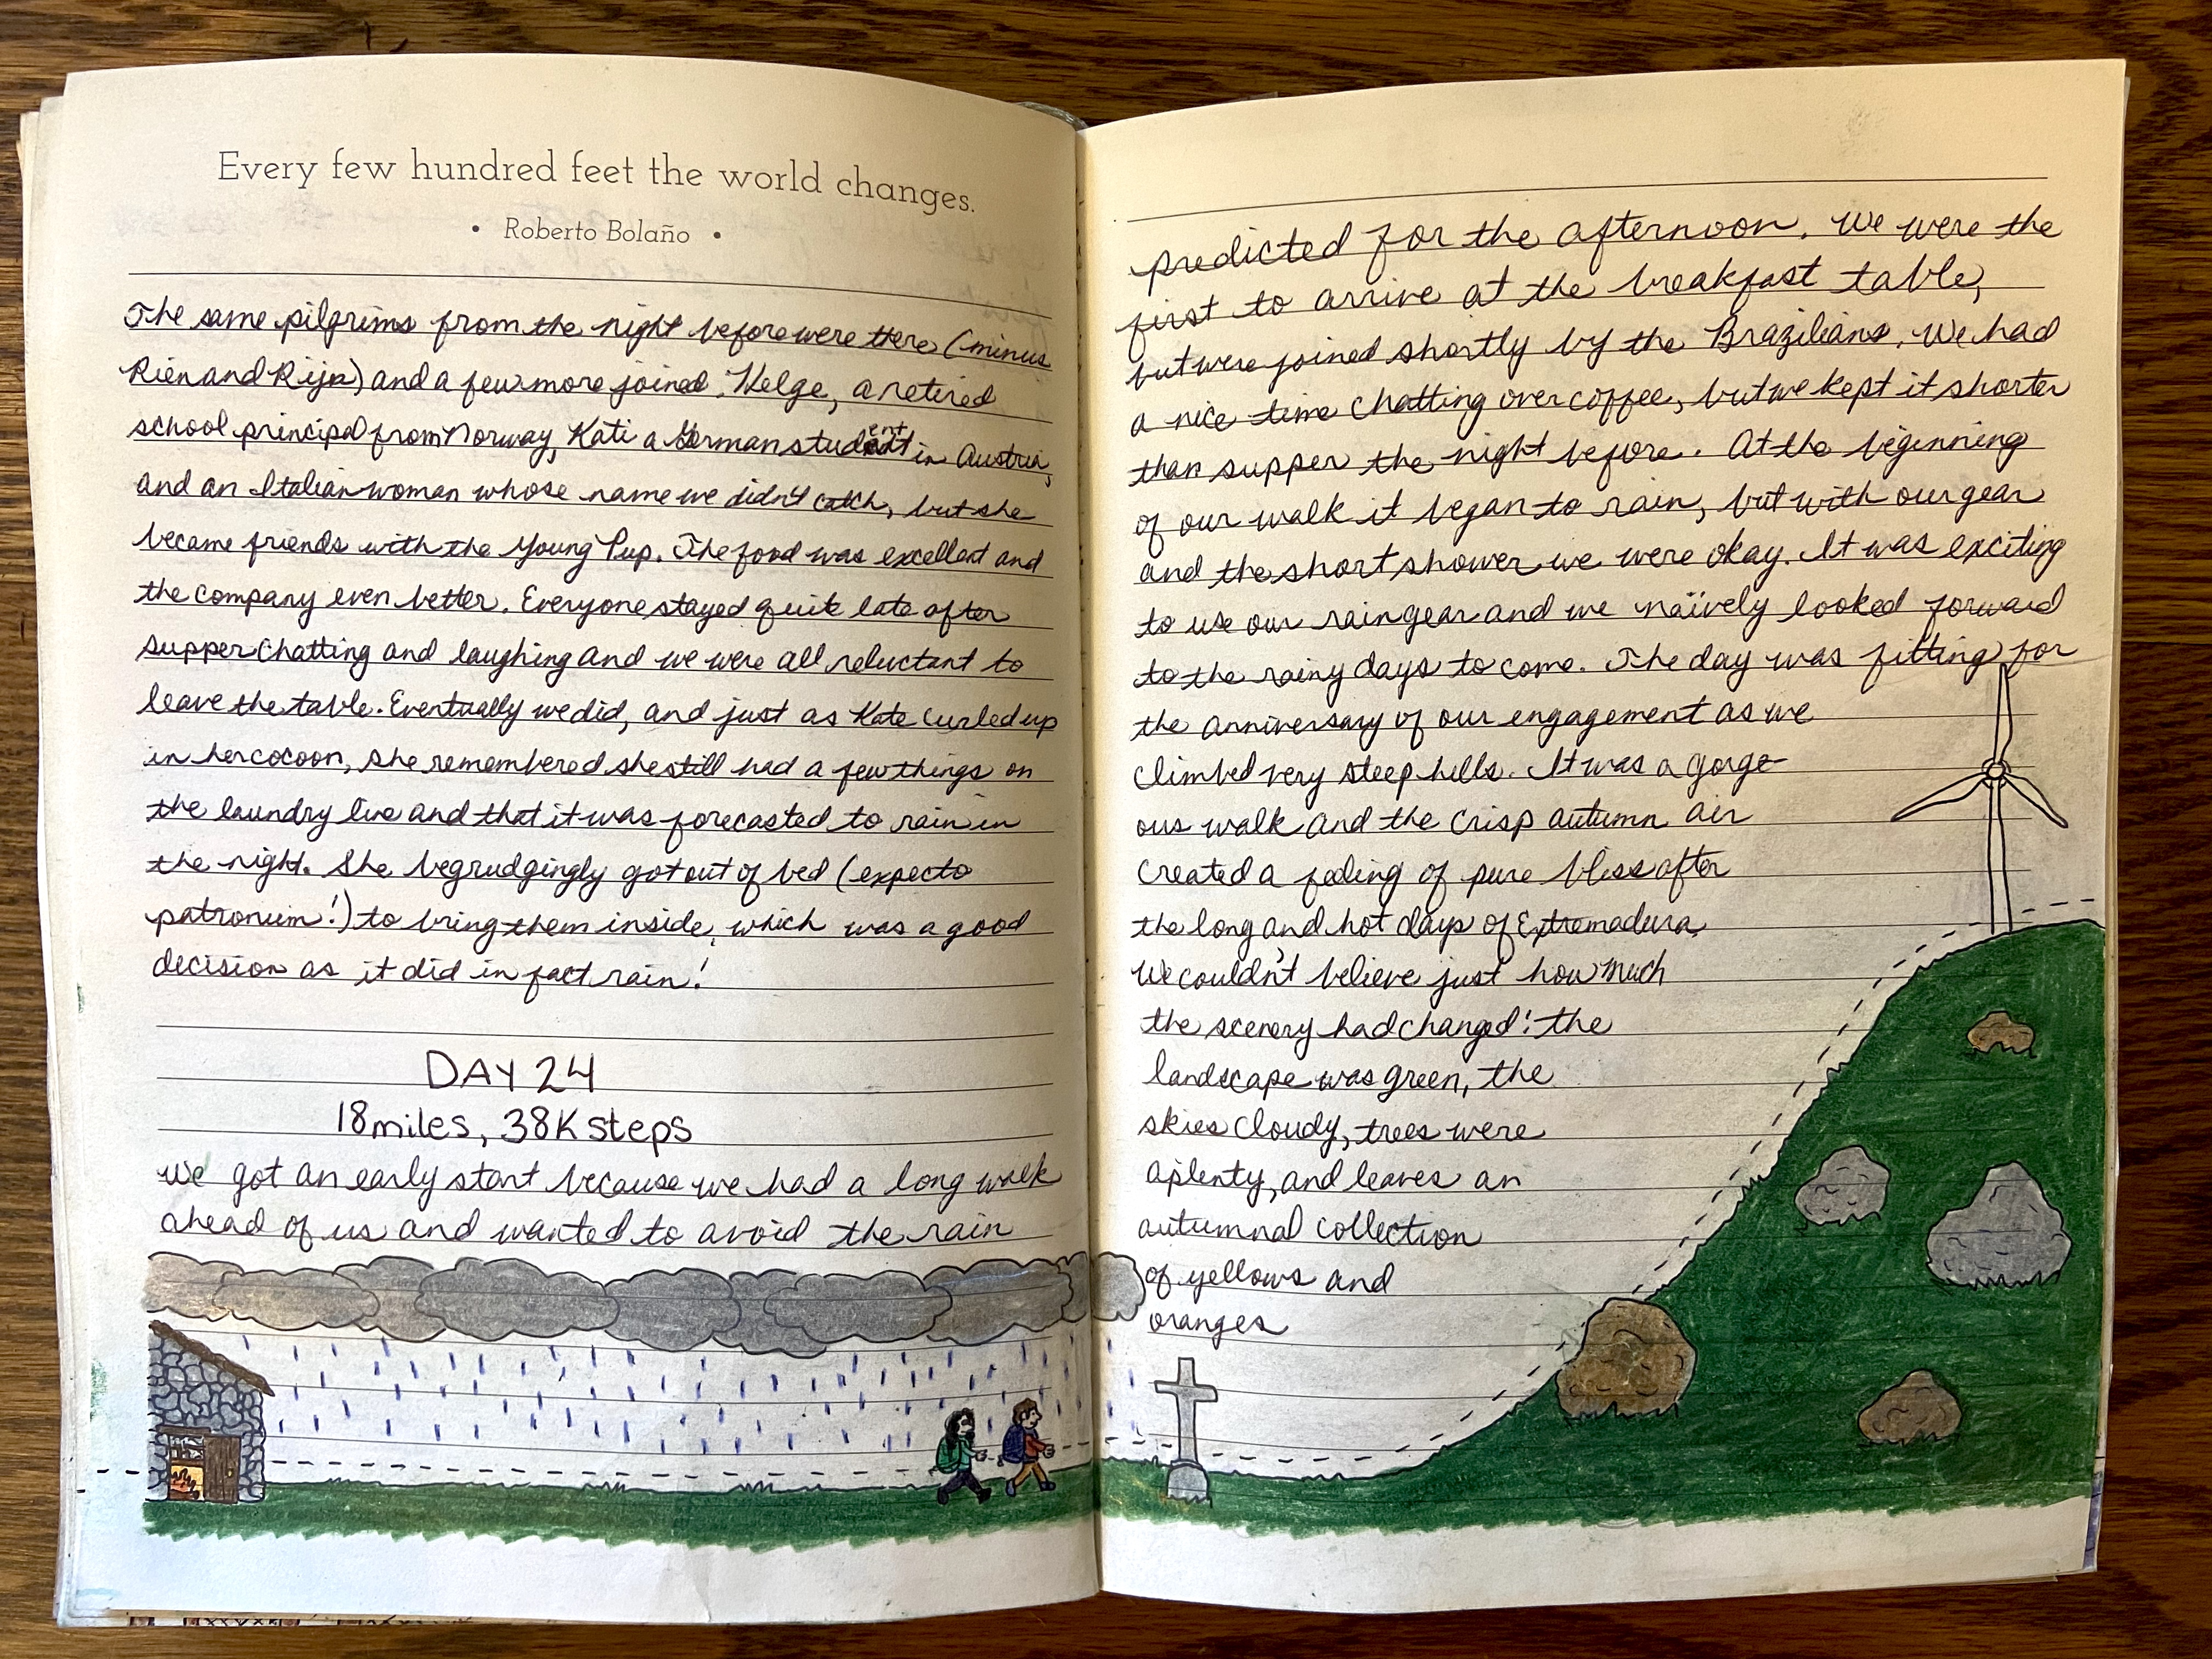 Every few hundred feet the world changes.
• Roberto Bolaño •
The same pilgrims from the night before were there (minus
Rien and Rijn) and a few more joined: Helge, a retired
school principal from Norway, Kati a German student in Austria,
and an Italian woman whose name we didn't catch, but she
became friends with the Young Pup. The food was excellent and
the company even better. Everyone stayed quite late after
supper chatting and laughing and we were all reluctant to
leave the table. Eventually we did, and just as Kate curled up
in her cocoon, she remembered she still had a few things on
the laundry line and that it was forecasted to rain in
the night. She begrudgingly got out of bed (expecto
patronum!) to bring them inside, which was a good
decision as it did in fact rain!
DAY 24
18 miles, 38K steps
We got an early start because we had a long walk
ahead of us and wanted to avoid the rain
predicted for the afternoon. We were the
first to arrive at the breakfast table,
but were joined shortly by the Brazilians. We had
a nice time chatting over coffee, but we kept it shorter
than supper the night before. At the beginning
of our walk it began to rain, but with our gear
and the short shower we were okay. It was exciting
to use our rain gear and we naïvely looked forward
to the rainy days to come. The day was fitting for
the anniversary of our engagement as we
climbed very steep hills. It was a gorge-
ous walk and the crisp autumn air
created a feeling of pure bliss after
the long and hot days of Extremadura.
We couldn't believe just how much
the scenery had changed: the
landscape was green, the
skies cloudy, trees were
aplenty, and leaves an
autumnal collection
of yellows and
oranges